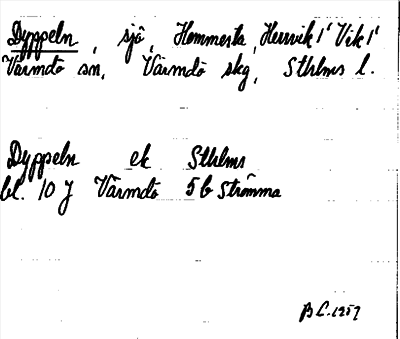 Dyppeln, sjö, Hemmesta, Hersvik 1' Vik 1'
Värmdö sn, Värmdö skg, Sthlms l.
Dyppeln ek Sthlms
bl. 10 J Värmdö 5b Strömma
B L. 1959